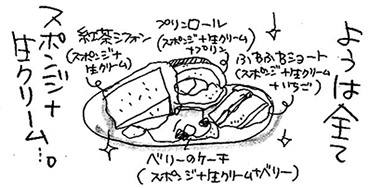 ようは全て
スポンジ+
生クリーム…。
プリンロール
(スポンジ+生クリーム
+プリン)
紅茶シフォン
(スポンジ+
生クリーム)
ぷちぷちショート
(スポンジ+生クリーム
+いちご)
ベリーのケーキ
(スポンジ+生クリーム+ベリー)